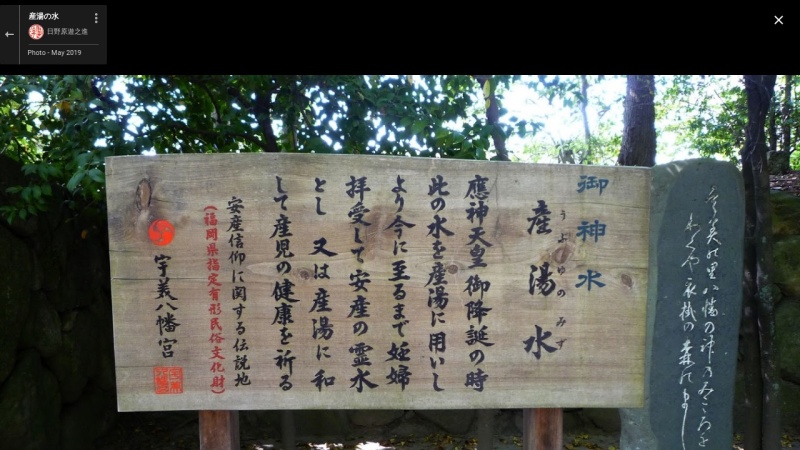 産湯の水
日野原遊之進
Photo - May 2019
御神水
産湯水
うぶゆのみず
應神天皇 御降誕の時
此の水を産湯に用いし
より今に至るまで妊婦
拝受して安産の霊水
とし 又は産湯に和
して産児の健康を祈る
安産信仰に関する伝説地
(福岡県指定有形民俗文化財)
宇美八幡宮